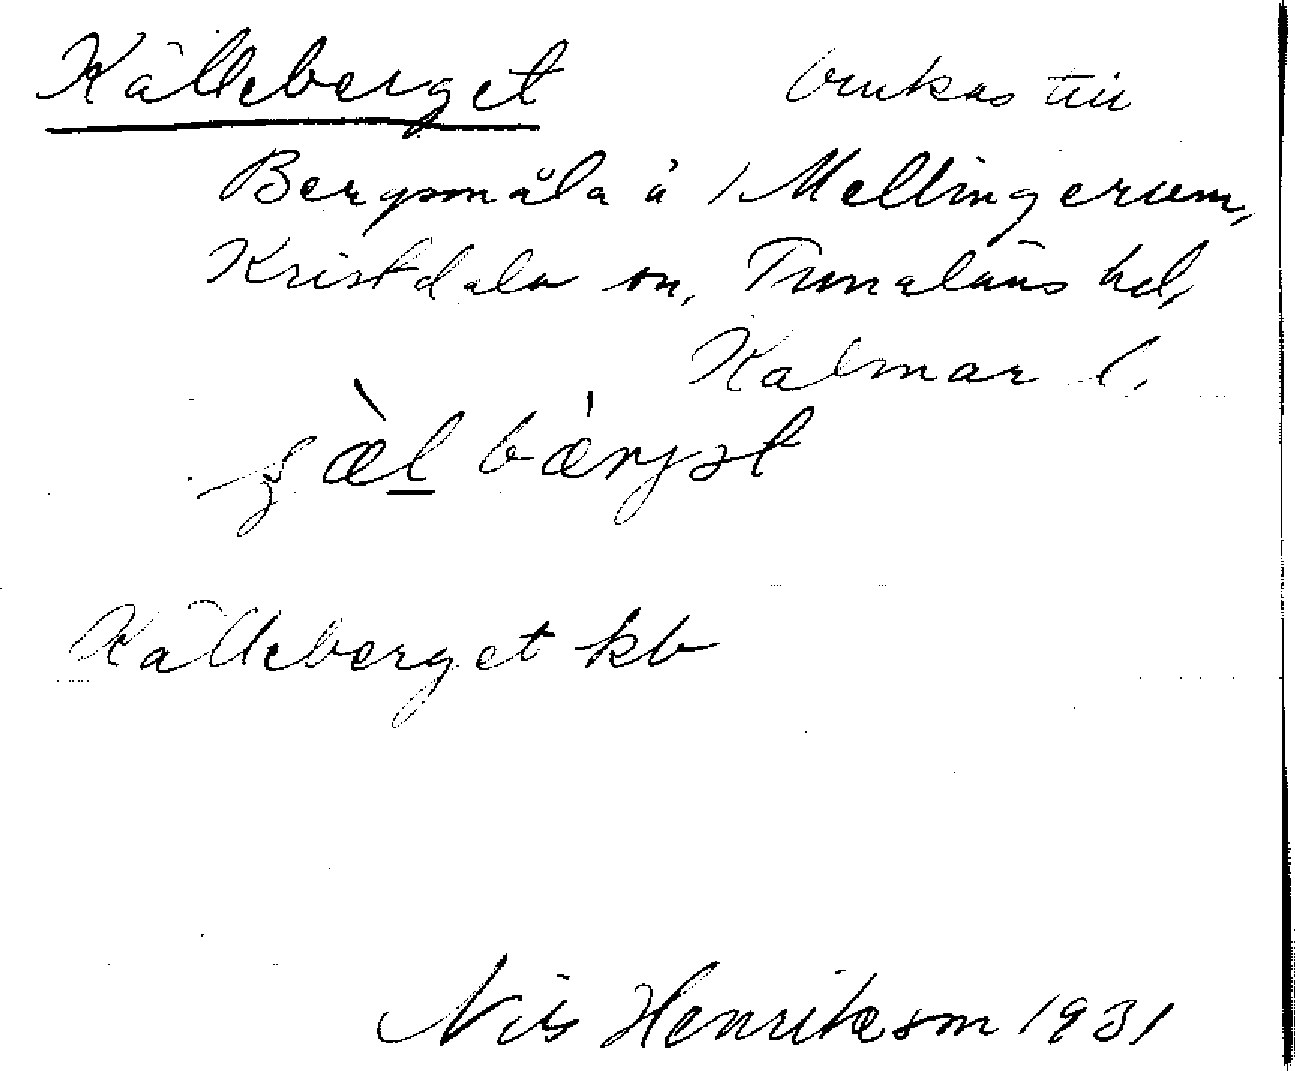 Källeberget brukas till
Bergsmåla å 1 Mellingerum,
Kristdala sn, Tunaläns hd,
Kalmar l.
bærjət
Källeberget kb
Nils Henrikson 1931